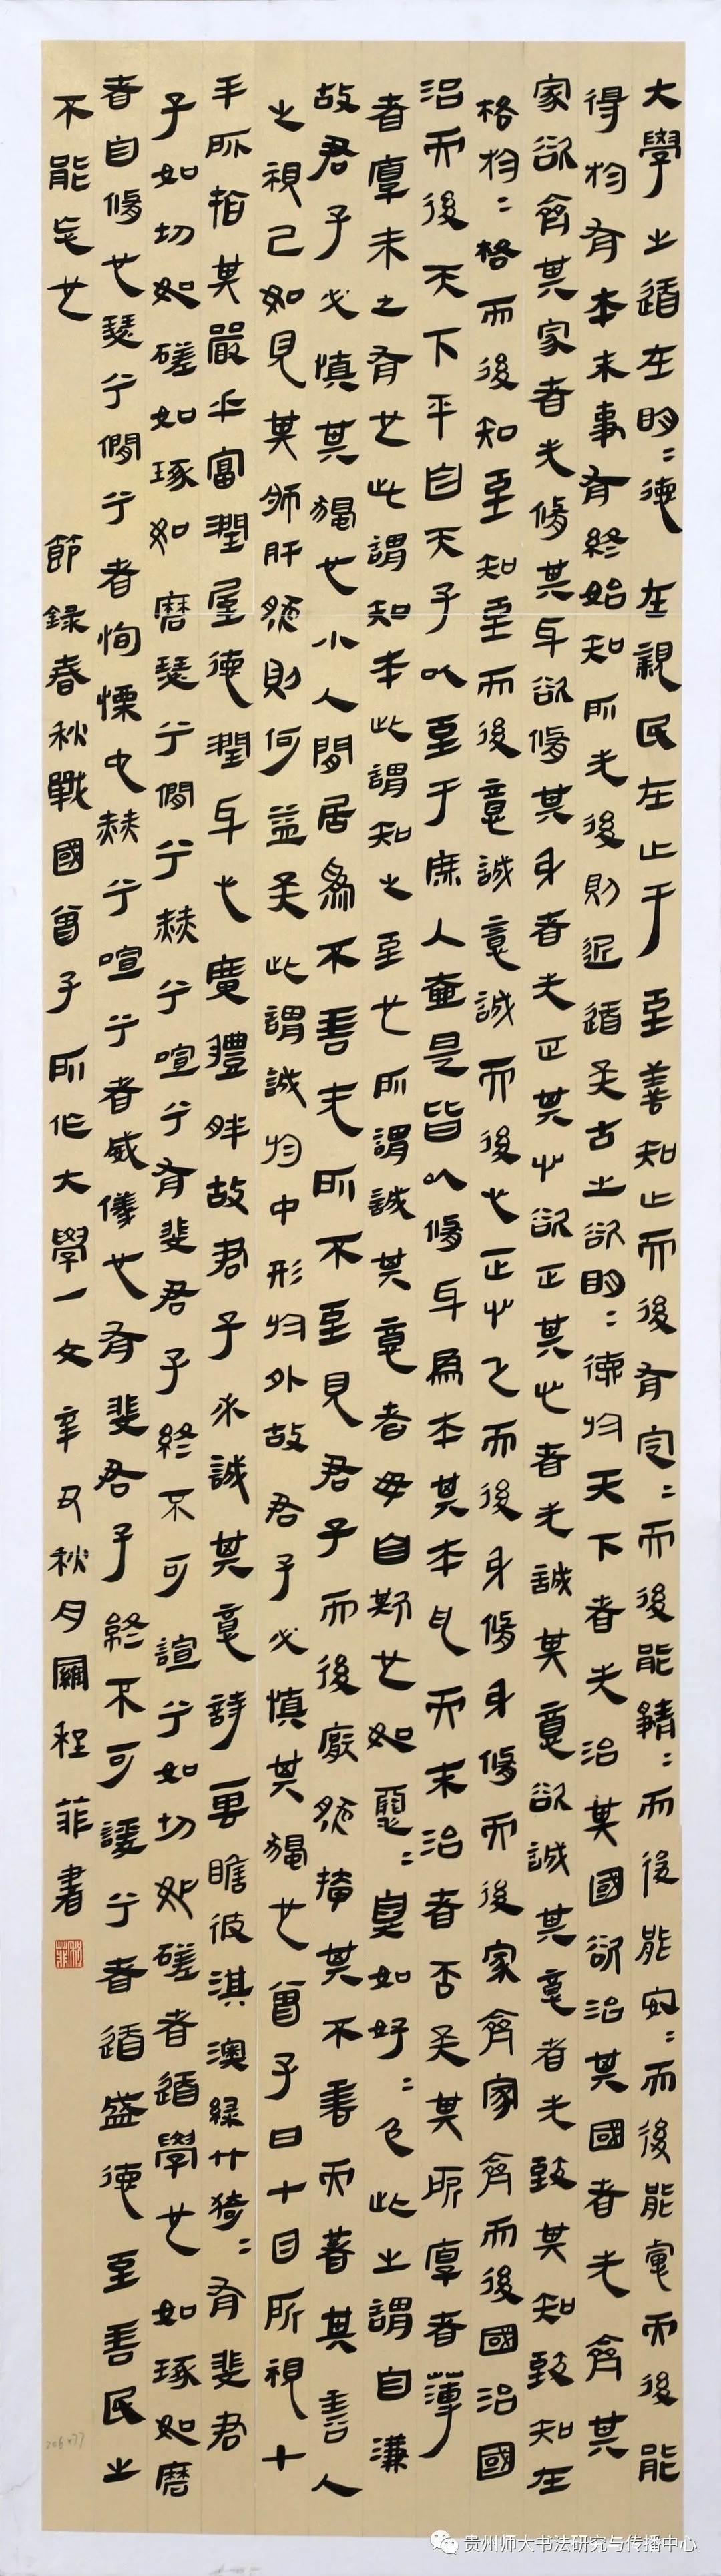 大學之道在明〻德在親民在止于至善知止而後有定〻而後能靜〻而後能安〻而後能慮而後能
得物有本末事有終始知所先後則近道矣古之欲明〻德於天下者先治其國欲治其國者先齊其
家欲齊其家者先脩其身欲脩其身者先正其心欲正其心者先誠其意欲誠其意者先致其知致知在
格物〻格而後知至知至而後意誠意誠而後心正心正而後身脩身脩而後家齊家齊而後國治國
治而後天下平自天子以至于庶人壹是皆以脩身爲本其本亂而末治者否矣其所厚者薄
者厚未之有也此謂知本此謂知之至也所謂誠其意者毋自欺也如惡〻臭如好〻色此之謂自謙
故君子必慎其獨也小人閒居爲不善无所不至見君子而後厭然揜其不善而著其善人
之視己如見其肺肝然則何益矣此謂誠於中形於外故君子必慎其獨也曾子曰十目所視十
手所指其嚴乎富潤屋德潤身心廣體胖故君子必誠其意詩曰瞻彼淇澳綠竹猗〻有斐君
子如切如磋如琢如磨瑟兮僩兮赫兮喧兮有斐君子終不可諠兮如切如磋者道學也如琢如磨
者自脩也瑟兮僩兮者恂慄也赫兮喧兮者威儀也有斐君子終不可諼兮者道盛德至善民之
不能忘也
節錄春秋戰國曾子所作大學一文辛丑秋月關程菲書
贵州师大书法研究与传播中心